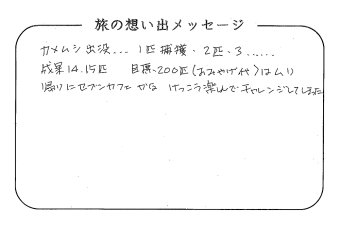 旅の想い出メッセージ
カメムシ出没... 1匹捕獲、2匹、3......
成果14.15匹 目標、200匹(おみやげ代)はムリ
帰りにセブンカフェ けっこう楽しんでチャレンジしてしまった